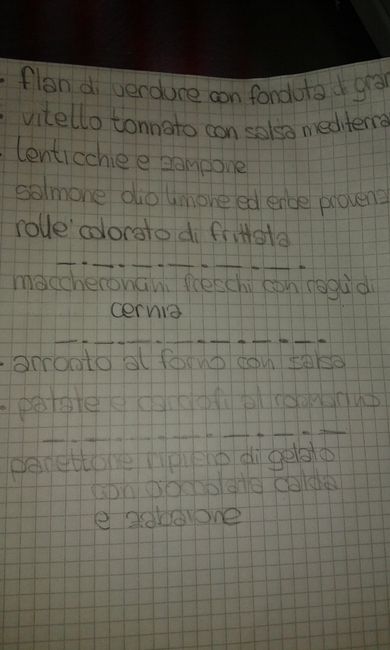 - flan di verdure con fonduta di gran
- vitello tonnato con salsa mediterra
- lenticchie e zampone
salmone olio limone ed erbe provenz
rollè colorato di frittata
maccheroncini freschi con ragù di
cernia
- arrosto al forno con salsa
- patate e carciofi al rosmarino
panettone ripieno di gelato
con cioccolata calda
e zabaione